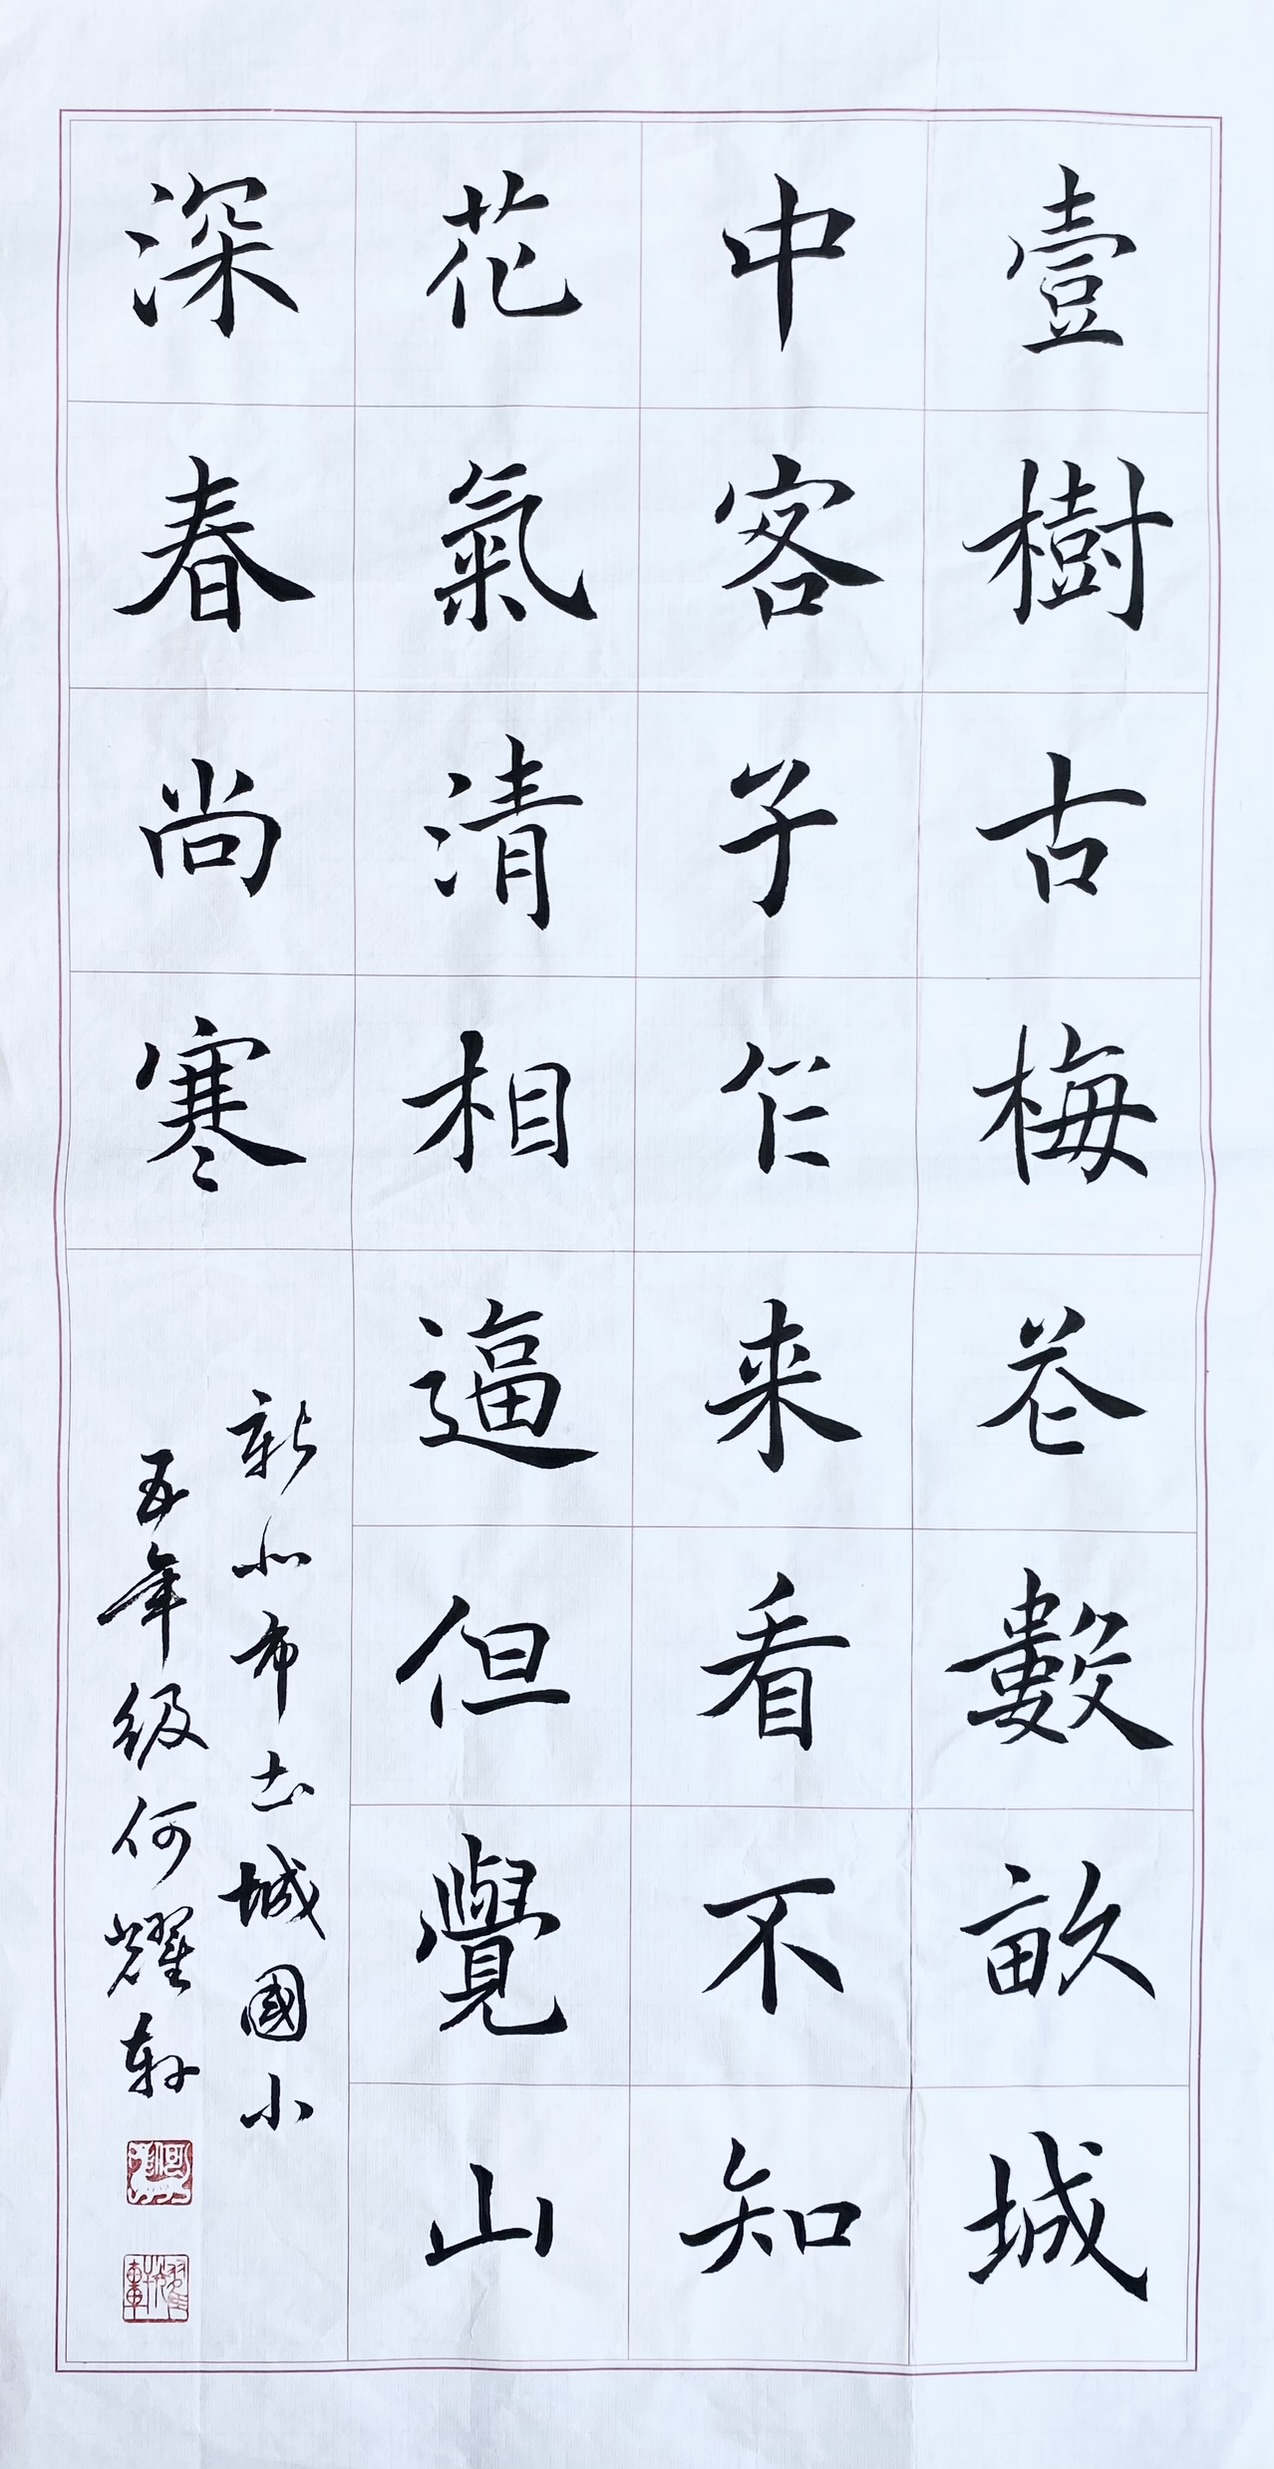 壹樹古梅花數畝城
中客子乍来看不知
花氣清相逼但覺山
深春尚寒
新北市土城國小
五年級何耀軒
耀軒